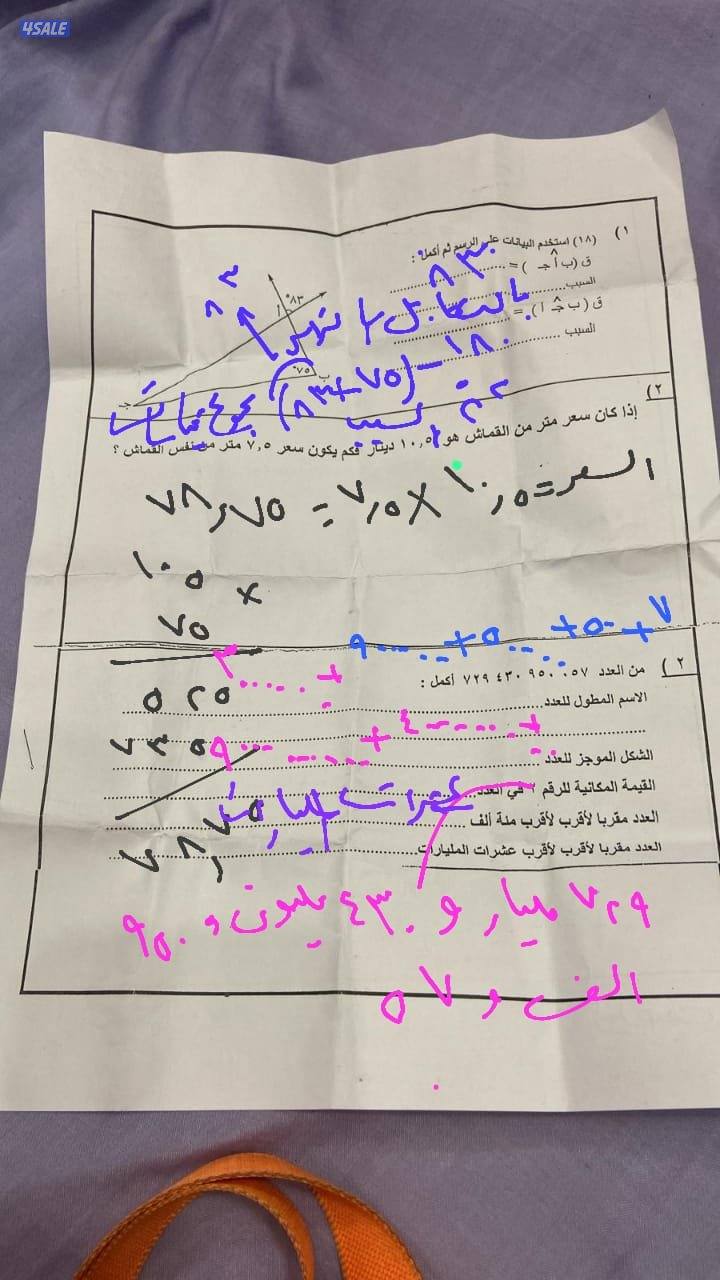 4SALE
١)
(١٨) استخدم البيانات على الرسم ثم أكمل :
ق (ب أ جـ ) = ..........
٨٣°
السبب..........
بالتقابل بالرأس
ق (ب جـ أ ) = ..........
السبب ..........
١٨٠ - (٧٥+٨٣)
٨٣
٨٣°
أ
٧٥°
ب
جـ
٢)
إذا كان سعر متر من القماش هو ١٠,٥ دينار فكم يكون سعر ٧,٥ متر من نفس القماش ؟
السعر = ١٠,٥ × ٧,٥ = ٧٨,٧٥
١٠٥ ×
٧٥
٥٢٥
٧٣٥
٧٨,٧٥
٢)
من العدد ٠٥٧ ٩٥٠ ٤٣٠ ٧٢٩ أكمل :
الاسم المطول للعدد..........
الشكل الموجز للعدد ..........
القيمة المكانية للرقم ٢ في العدد..........
عشرات المليارات
العدد مقربا لأقرب لأقرب مئة ألف ..........
العدد مقربا لأقرب لأقرب عشرات المليارات..........
٧٢٩ مليار و ٤٣٠ مليون و ٩٥٠
الف و ٥٧